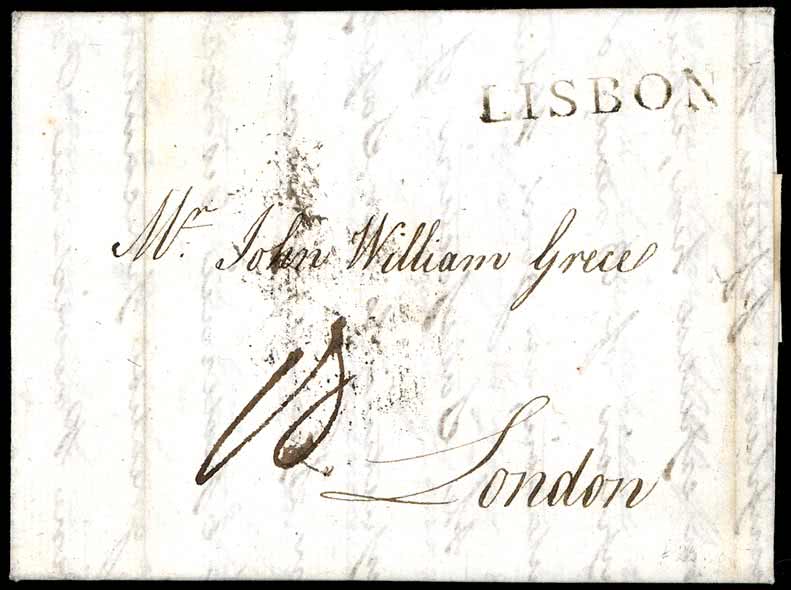 LISBON
Mr. John William Grece
London